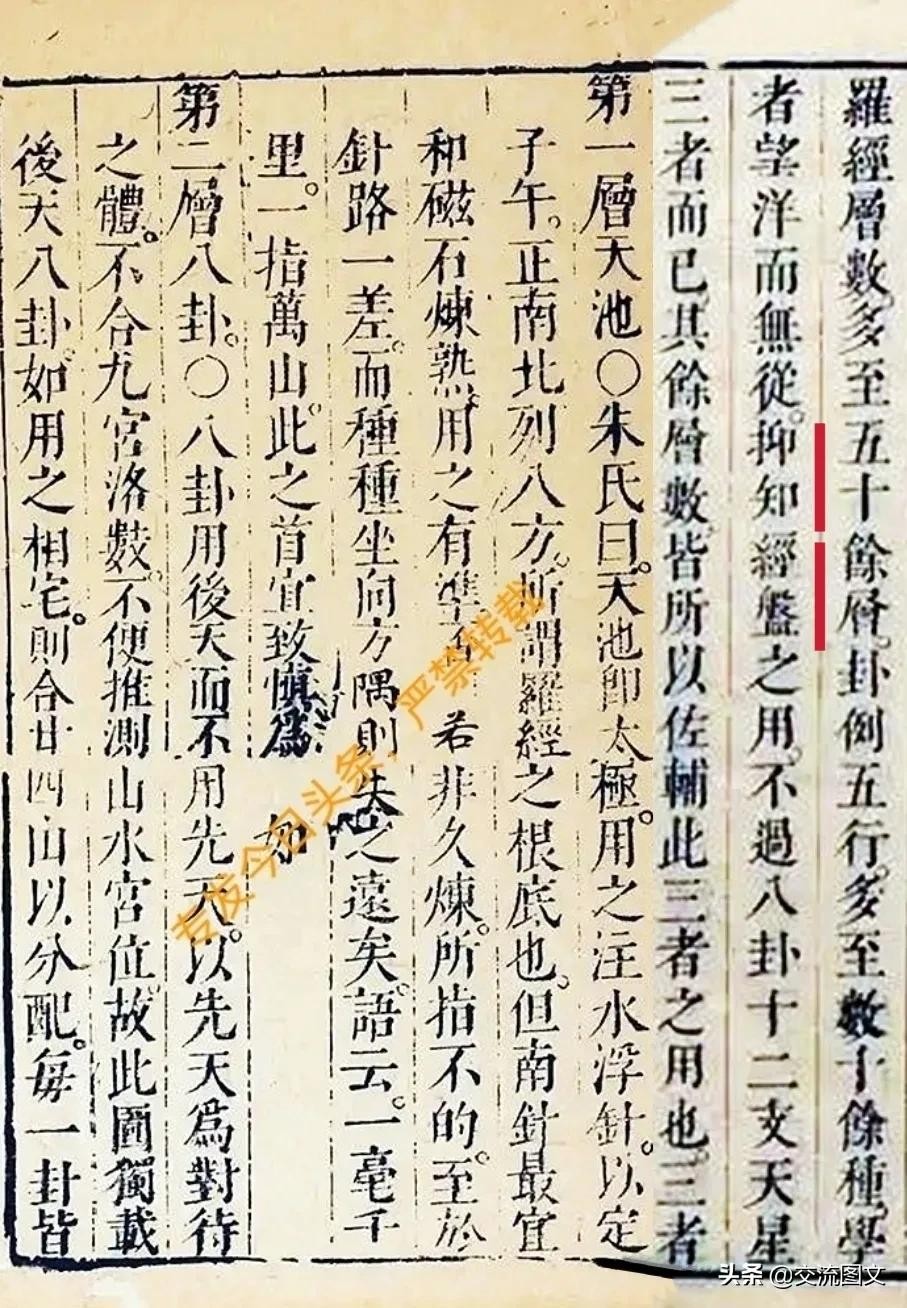 羅經層數。多至五十餘層。卦例五行。多至數十餘種。學
者望洋而無從。抑知經盤之用。不過八卦十二支天星
三者而已。其餘層數。皆所以佐輔此三者之用也。三者
第一層天池○朱氏曰。天池卽太極。用之注水浮針。以定
子午。正南北列八方。所謂羅經之根底也。但南針最宜
和磁石煉熟。用之有準若非久煉。所指不的。至於
針路一差。而種種坐向方隅則失之遠矣。語云。一毫千
里。一指萬山。此之首宜致慎爲
如
第二層八卦。○八卦用後天而不用先天。以先天爲對待
之體。不合九宮洛数。不便推測山水宮位。故此圖獨載
後天八卦。如用之相宅。則合廿四山以分配。每一卦皆
专发今日头条，严禁转载
头条 @交流图文